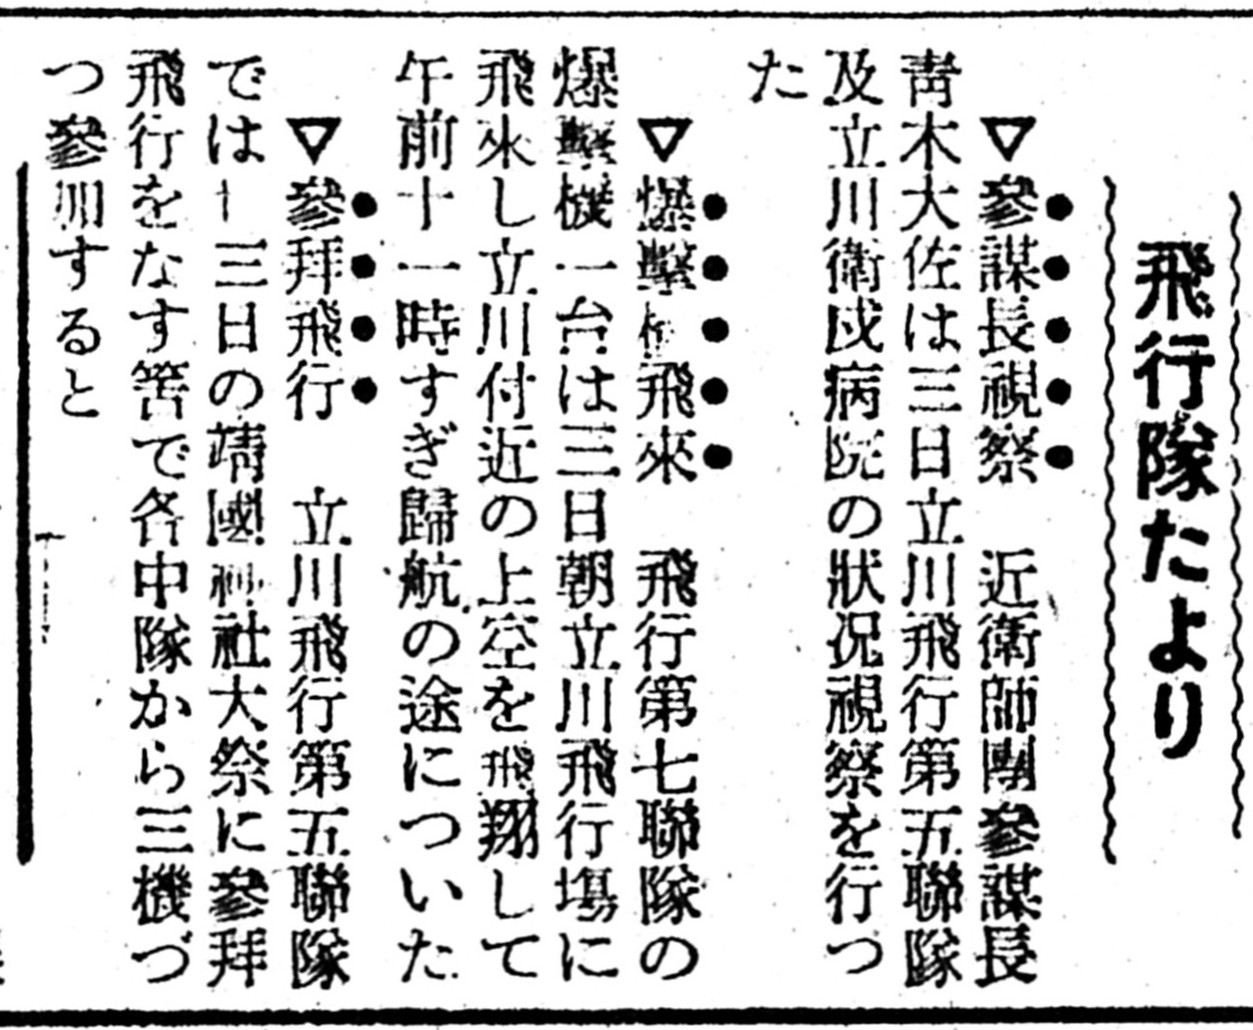 飛行隊たより
▽參謀長視察　近衛師團參謀長
靑木大佐は三日立川飛行第五聯隊
及立川衛戍病院の狀況視察を行つ
た
▽爆擊機飛來　飛行第七聯隊の
爆擊機一台は三日朝立川飛行場に
飛來し立川付近の上空を飛翔して
午前十一時すぎ歸航の途についた
▽參拜飛行　立川飛行第五聯隊
では十三日の靖國神社大祭に參拜
飛行をなす筈で各中隊から三機づ
つ參加すると